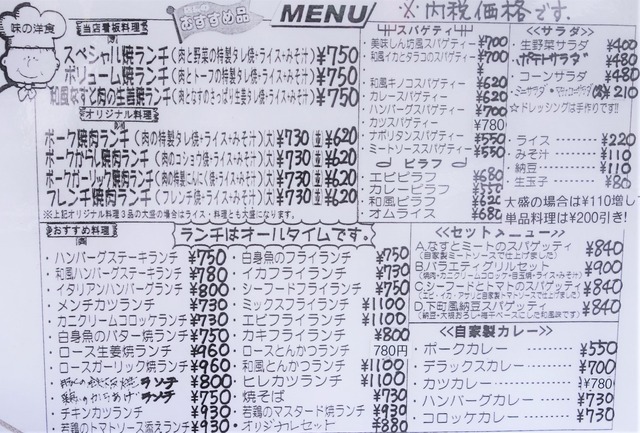 味の洋食
当店看板料理
おすすめ品
MENU
※内税価格です。
スペシャル焼ランチ(肉と野菜の特製タレ焼・ライス・みそ汁) ¥750
ボリューム焼ランチ(肉とトーフの特製タレ焼・ライス・みそ汁) ¥750
和風なすと肉の生姜焼ランチ(肉となすのさっぱり生姜タレ焼・ライス・みそ汁) ¥750
オリジナル料理
ポーク焼肉ランチ(肉の特製タレ焼・ライス・みそ汁)(大)¥730(並)¥620
ポークからし焼ランチ(肉のコショウ焼・ライス・みそ汁)(大)¥730(並)¥620
ポークガーリック焼ランチ(肉の特製にんにく焼・ライス・みそ汁)(大)¥730(並)¥620
フレンチ焼肉ランチ(フレンチ焼・ライス・みそ汁)(大)¥730(並)¥620
※上記オリジナル料理3品の大盛の場合はライス・料理とも大盛になります。
スパゲティ
美味しん坊風スパゲティー ¥700
和風イカとタラコのスパゲティー ¥700
和風キノコスパゲティー ¥620
カレースパゲティー ¥620
ハンバーグスパゲティー ¥700
カツスパゲティー ¥780
ナポリタンスパゲティー ¥550
ミートソーススパゲティー ¥550
ピラフ
エビピラフ ¥680
カレーピラフ ¥550
和風ピラフ ¥620
オムライス ¥680
<<サラダ>>
・生野菜サラダ ¥400
・ポテトサラダ ¥480
・コーンサラダ ¥480
¥210
☆ドレッシングは手作りです!!
・ライス ¥220
・みそ汁 ¥110
・納豆 ¥110
・生玉子 ¥80
大盛の場合は¥110増し
単品料理は¥200引き!
おすすめ料理
ランチはオールタイムです。
・ハンバーグステーキランチ ¥750
・和風ハンバーグランチ ¥780
・イタリアンハンバーグランチ ¥800
・メンチカツランチ ¥730
・カニクリームコロッケランチ ¥730
・白身魚のバター焼ランチ ¥750
・ロース生姜焼ランチ ¥960
・ロースガーリック焼ランチ ¥960
ランチ ¥800
ランチ ¥750
・チキンカツランチ ¥930
・若鶏のトマトソース添えランチ ¥930
・白身魚のフライランチ ¥750
・イカフライランチ ¥730
・シーフードフライランチ ¥750
・ミックスフライランチ ¥1100
・エビフライランチ ¥1100
・カキフライランチ ¥800
・ロースとんかつランチ 780円
・和風とんかつランチ ¥1100
・ヒレカツランチ ¥1100
・焼そば ¥730
・若鶏のマスタード焼ランチ ¥930
・オリジナルセット ¥880
<<セットメニュー>>
A.なすとミートのスパゲッティ ¥840
(自家製ミートソースで仕上げました)
B.バラエティグリルセット ¥900
(焼肉・カニクリームコロッケ・目玉焼・ライス・みそ汁)
C.シーフードとトマトのスパゲッティ ¥840
(エビ・イカ・アサリと自家製トマトソースで仕上げました)
D.下町風納豆スパゲッティ ¥840
(納豆・大根おろし・梅干ベースにした和風味です)
<<自家製カレー>>
・ポークカレー ¥550
・デラックスカレー ¥700
・カツカレー ¥780
・ハンバーグカレー ¥730
・コロッケカレー ¥730